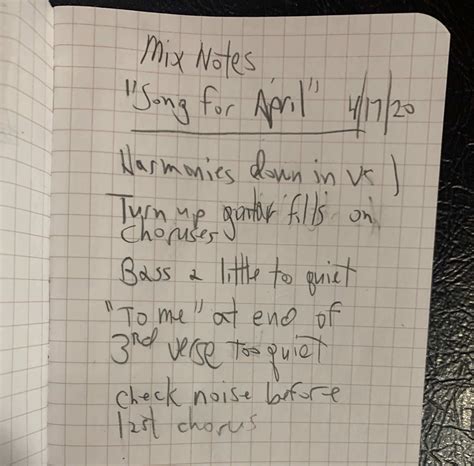 Mix Notes
"Song for April" 4/17/20
Harmonies down in vs 1
Turn up guitar fills on
choruses
Bass a little to quiet
"To me" at end of
3rd verse too quiet
check noise before
last chorus